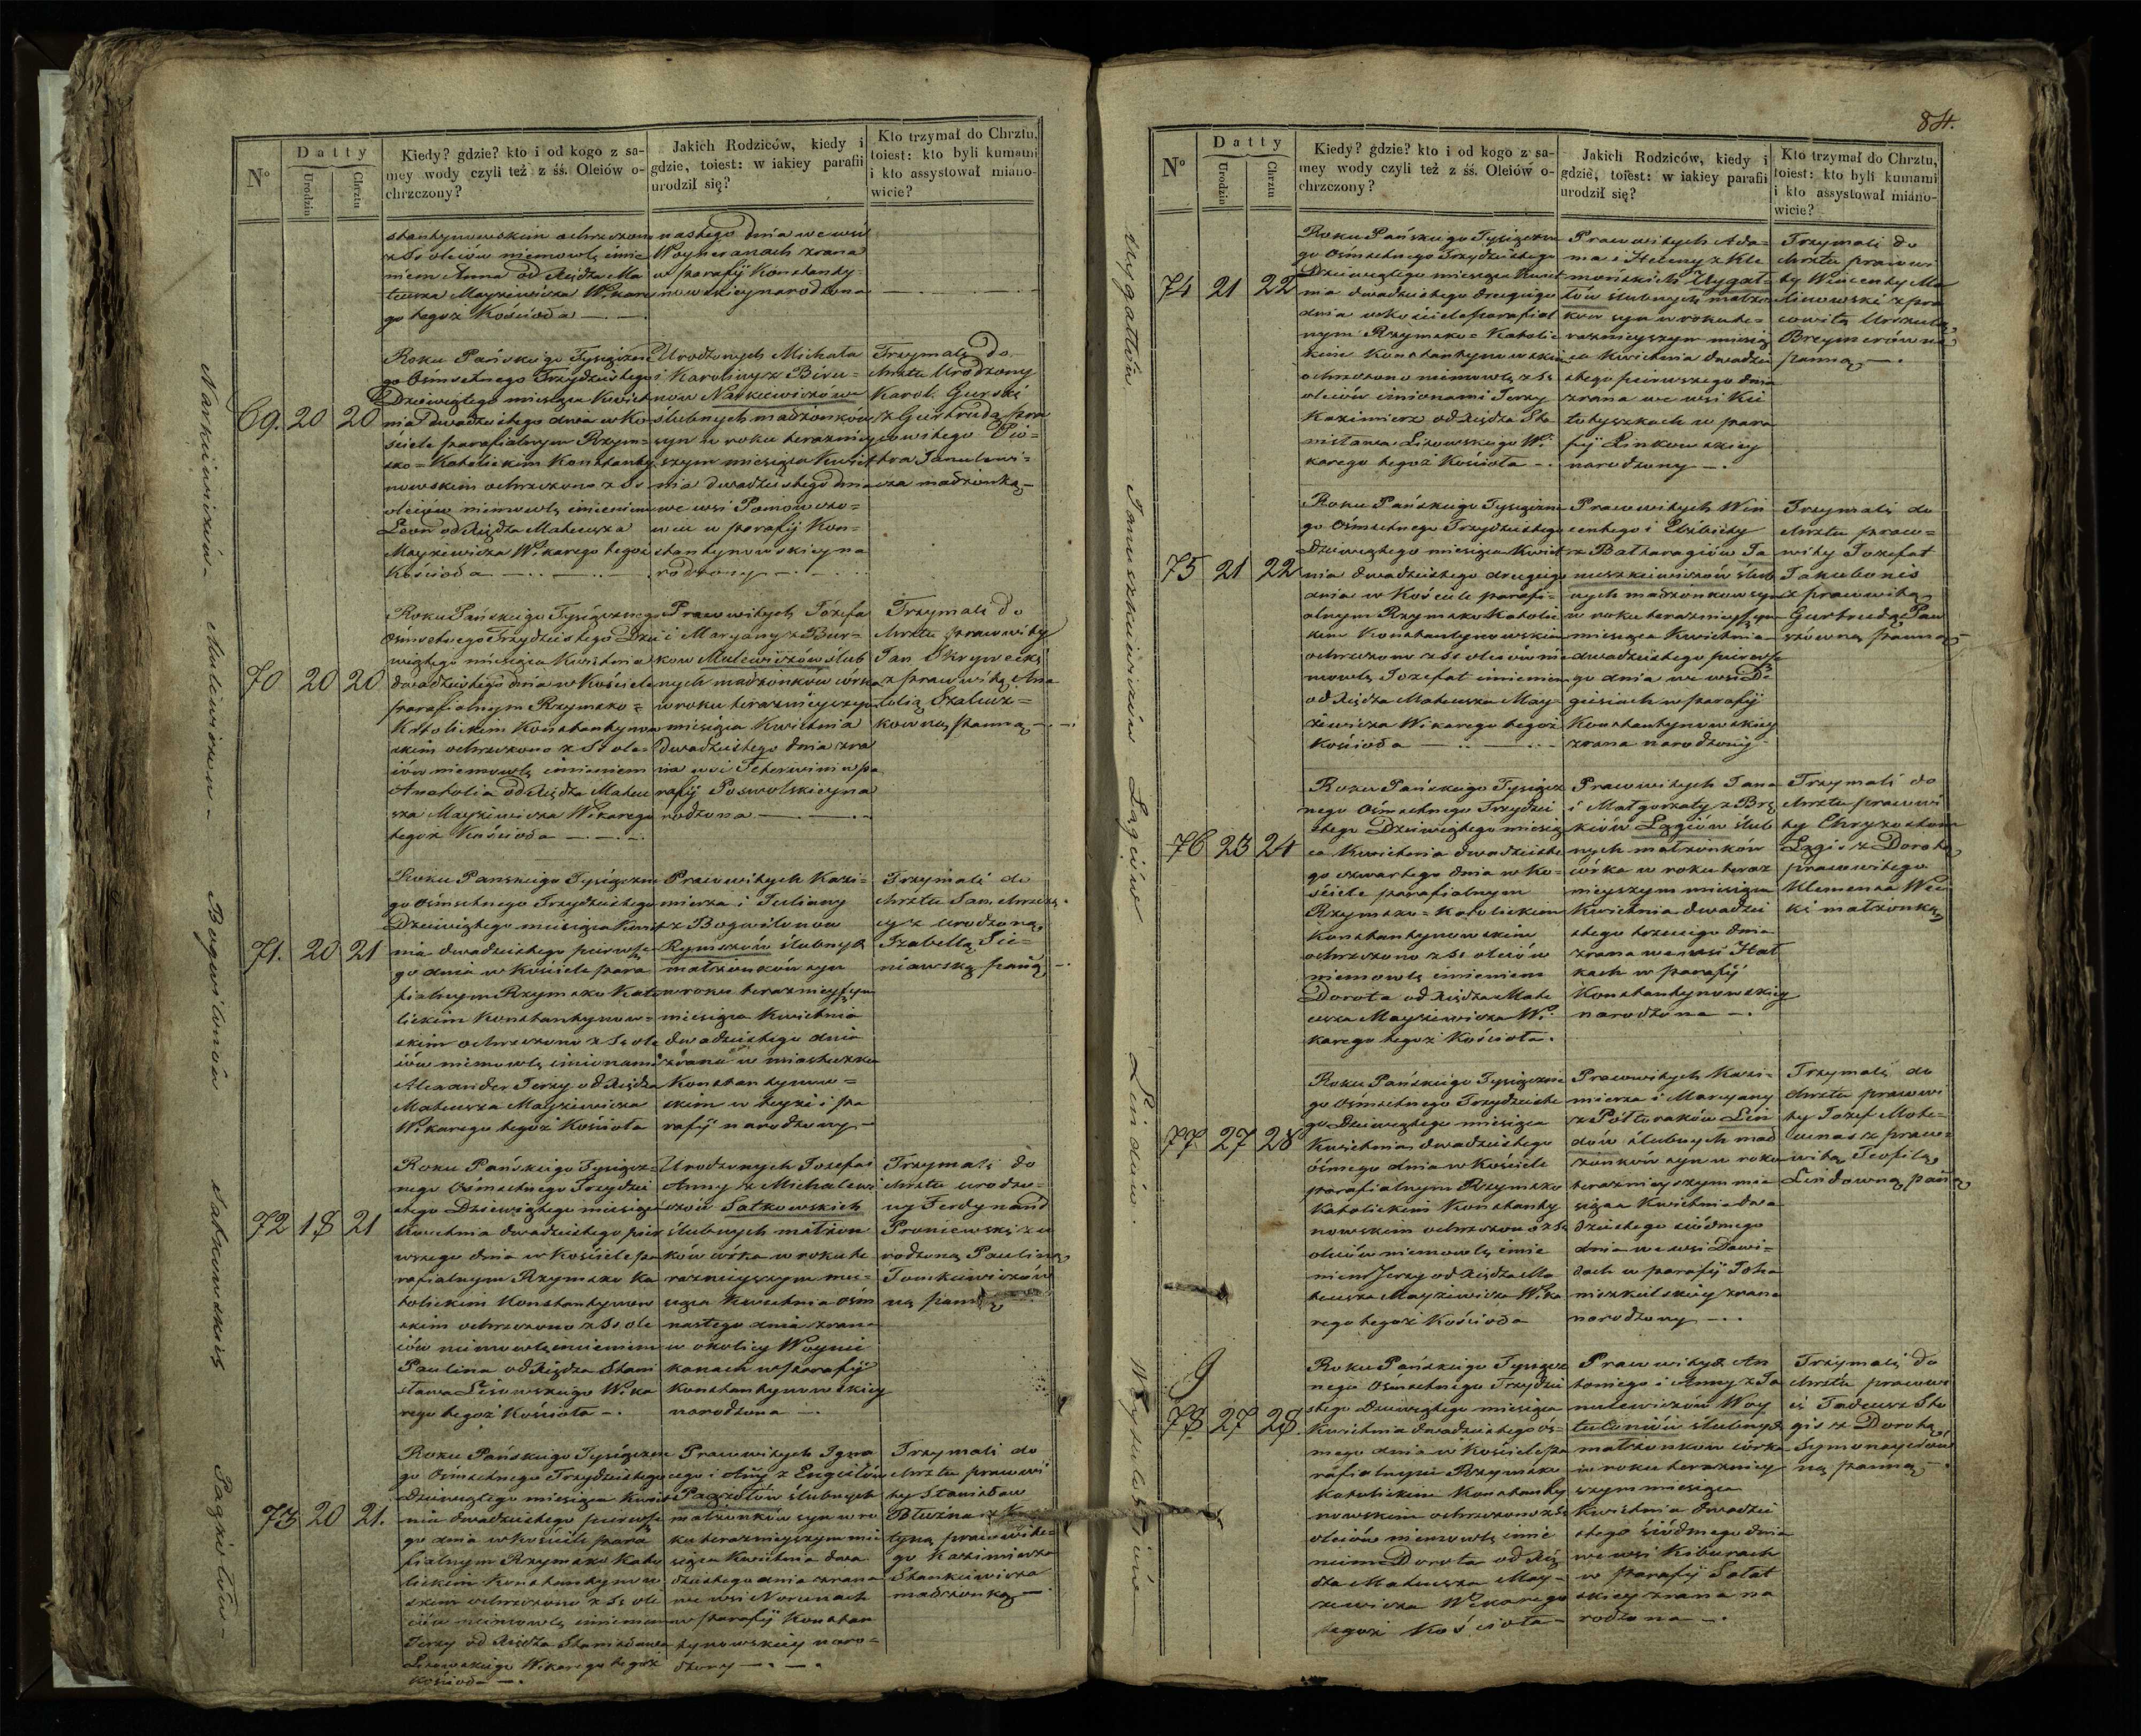 N°
Datty
Urodzin
Chrztu
Kiedy? gdzie? kto i od kogo z sa-
mey wody czyli też z śś. Oleiów o-
chrzczony?
Jakich Rodziców, kiedy i
gdzie, toiest: w iakiey parafii
urodził się?
Kto trzymał do Chrztu,
toiest: kto byli kumami
i kto assystował miano-
wicie?
stantynowskim ochrzczono
z SS oleiów niemowlę imie
niem Anna od Xiędza Ma
teusza Mayziewicza Wikare
go tegoż Kościoła
nastego dnia we wsi
Woyneranach zrana
w parafij Konstanty-
nowskiey narodzona
Narkiewiczów
69. 20 20
Roku Pańskiego Tysiączne
go Ośmsetnego Trzydziestego
Dziewiątego miesiąca Kwiet
nia Dwudziestego dnia w Ko
ściele parafialnym Rzym-
sko=Katolickim Konstanty
nowskim ochrzczono z SS
oleiów niemowlę imieniem
Leon od Xiędza Mateusza
Mayziewicza Wikarego tegoż
Kościoła
Urodzonych Michała
i Karoliny z
Narkiewiczów
ślubnych małżonków
syn w roku teraźniey
szym miesiąca Kwiet
nia dwudziestego dnia
we wsi
w parafij Kon-
stantynowskiey na
rodzony
Trzymali do
chrztu Urodzony
Karol Gurski
z Gertrudą pra
cowitego Pio-
tra Janulewi-
cza małżonką
Mulewiczów
70 20 20
Roku Pańskiego Tysiącznego
Ośmsetnego Trzydziestego Dzie
wiątego miesiąca Kwietnia
dwudziestego dnia w Kościele
parafialnym Rzymsko=
Katolickim Konstantynow
skim ochrzczono z SS ole
iów niemowlę imieniem
Anatolia od Xiędza Mateu
sza Mayziewicza Wikarego
tegoż Kościoła
Pracowitych Józefa
i Maryany z Bur-
kow Mulewiczów ślub
nych małżonków córka
w roku teraźnieyszym
miesiąca Kwietnia
dwudziestego dnia zra
na wsi w pa
rafij Poswolskiey na
rodzona
Trzymali do
chrztu pracowity
Jan
z pracowitą Ana
tolią
kowną panną
Bogwilonów
71. 20 21
Roku Pańskiego Tysiączne
go Ośmsetnego Trzydziestego
Dziewiątego miesiąca Kwiet
nia dwudziestego pierwsze
go dnia w Kościele para
fialnym Rzymsko Kato
lickim Konstantynow=
skim ochrzczono z SS ole
iów niemowlę imionami
Alexander Jerzy od Xiędza
Mateusza Mayziewicza
Wikarego tegoż Kościoła
Pracowitych Kazi-
mierza i Juliany
z Bogwilonow
Rymszów ślubnych
małżonków syn
w roku teraźnieyszym
miesiąca Kwietnia
dwudziestego dnia
zrana w miasteczku
Konstantynow=
skim w teyże i pa
rafij narodzony
Trzymali do
chrztu Jan
z urodzoną
Izabellą Sie=
niawską panną
Satkowskich
72 18 21
Roku Pańskiego Tysiącz-
nego Ośmsetnego Trzydzie
stego Dziewiątego miesiąca
Kwietnia dwudziestego pier
wszego dnia w Kościele pa
rafialnym Rzymsko Ka
tolickim Konstantynow
skim ochrzczono z SS ole
iów niemowlę imieniem
Paulina od Xiędza Stani
sława Lisowskiego Wika
rego tegoż Kościoła
Urodzonych Józefa i
Anny z Michalewi
czów Satkowskich
ślubnych małżon
ków córka w roku te
raźnieyszym mie-
siąca Kwietnia ośm
nastego dnia zrana
w okolicy Woynie
kanach w parafij
Konstantynowskiey
narodzona
Trzymali do
chrztu urodzo-
ny Ferdynand
Proniewski z u
rodzoną Pauliną
Tomkiewiczów
ną panną
73 20 21.
Roku Pańskiego Tysiączne
go Ośmsetnego Trzydziestego
Dziewiątego miesiąca Kwiet
nia dwudziestego pierwsze
go dnia w Kościele para
fialnym Rzymsko Kato
lickim Konstantynow
skim ochrzczono z SS ole
iów niemowlę imieniem
Jerzy od Xiędza Stanisława
Lisowskiego Wikarego tegoż
Kościoła
Pracowitych Igna
cego i Anny z
ślubnych
małżonków syn w ro
ku teraźnieyszym mie
siąca Kwietnia dwu
dziestego dnia zrana
we wsi Norunach
w parafij Konstan
tynowskiey naro-
dzony
Trzymali do
chrztu pracowi
ty Stanisław
pracowite
go Kazimierza
Stankiewicza
małżonką
84.
N°
Datty
Urodzin
Chrztu
Kiedy? gdzie? kto i od kogo z sa-
mey wody czyli też z śś. Oleiów o-
chrzczony?
Jakich Rodziców, kiedy i
gdzie, toiest: w iakiey parafii
urodził się?
Kto trzymał do Chrztu,
toiest: kto byli kumami
i kto assystował miano-
wicie?
Wygattów
74 21 22
Roku Pańskiego Tysiączne
go Ośmsetnego Trzydziestego
Dziewiątego miesiąca Kwiet
nia dwudziestego drugiego
dnia w Kościele parafial
nym Rzymsko=Katolic
kim Konstantynowskim
ochrzczono niemowlę z SS
oleiów imionami Jerzy
Kazimierz od Xiędza Sta
nisława Lisowskiego Wi
karego tegoż Kościoła
Pracowitych Ada-
ma i Heleny z Kle
mońskich Wygat-
tów ślubnych małżon
ków syn w roku te-
raźnieyszym miesią
ca Kwietnia dwudzie
stego pierwszego dnia
zrana we wsi Kie
totyszkach w para
fij Linkowskiey
narodzony
Trzymali do
chrztu pracowi
ty Wincenty Ma
linowski z pra
cowitą Urszulą
Breymerówną
panną
Januszkiewiczów
75 21 22
Roku Pańskiego Tysiączne
go Ośmsetnego Trzydziestego
Dziewiątego miesiąca Kwiet
nia dwudziestego drugiego
dnia w Kościele parafi-
alnym Rzymsko Katolic
kim Konstantynowskim
ochrzczono z SS oleiów nie
mowlę Jozefat imieniem
od Xiędza Mateusza May-
ziewicza Wikarego tegoż
Kościoła
Pracowitych Win
centego i Elżbiety
z Baltaragiów Ja
nuszkiewiczów ślub
nych małżonków syn
w roku teraźnieyszym
miesiąca Kwietnia
dwudziestego pierwsze
go dnia we wsi
w parafij
Konstantynowskiey
zrana narodzony
Trzymali do
chrztu praco-
wity Jozefat
Jakubonis
z pracowitą
Gertrudą
panną
Łagiów
76 23 24
Roku Pańskiego Tysiącz
nego Ośmsetnego Trzydzie
stego Dziewiątego miesią
ca Kwietnia dwudzieste
go czwartego dnia w Ko-
ściele parafialnym
Rzymsko=Katolickim
Konstantynowskim
ochrzczono z SS oleiów
niemowlę imieniem
Dorota od Xiędza Mate
usza Mayziewicza Wi
karego tegoż Kościoła.
Pracowitych Jana
i Małgorzaty z
Łagiów ślub
nych małżonków
córka w roku teraz
nieyszym miesiąca
Kwietnia dwudzie
stego trzeciego dnia
zrana we wsi
w parafij
Konstantynowskiey
narodzona
Trzymali do
chrztu pracowi
ty Chryzostom
Łagis z Dorotą
pracowitego
Klemensa
małżonką
Lindów
77 27 28
Roku Pańskiego Tysiączne
go Ośmsetnego Trzydzieste
go Dziewiątego miesiąca
Kwietnia dwudziestego
ósmego dnia w Kościele
parafialnym Rzymsko
Katolickim Konstanty
nowskim ochrzczono z SS
oleiów niemowlę imie
niem Jerzy od Xiędza Ma
teusza Mayziewicza Wika
rego tegoż Kościoła
Pracowitych Kazi-
mierza i Maryany
z Półtoraków Lin
dów ślubnych mał
żonków syn w roku
teraźnieyszym mie
siąca Kwietnia dwu
dziestego siódmego
dnia we wsi Dawi-
dach w parafij Joha
niszkielskiey zrana
narodzony
Trzymali do
chrztu pracowi
ty Jozef Mote-
z praco-
witą Teofilą
Lindowną panną
78 27 28.
Roku Pańskiego Tysiącz
nego Ośmsetnego Trzydzie
stego Dziewiątego miesiąca
Kwietnia dwudziestego ós-
mego dnia w Kościele pa
rafialnym Rzymsko
Katolickim Konstanty
nowskim ochrzczono z SS
oleiów niemowlę imie
niem Dorota od Xię
dza Mateusza May-
ziewicza Wikarego
tegoż Kościoła
Pracowitych An
toniego i Anny z Ja
nulewiczów Woy
ślubnych
małżonków córka
w roku teraźniey
szym miesiąca
Kwietnia dwudzie
stego siódmego dnia
we wsi Kiburach
w parafij Salat
skiey zrana na
rodzona
Trzymali do
chrztu pracowi
Tadeusz
z Dorotą
ną panną